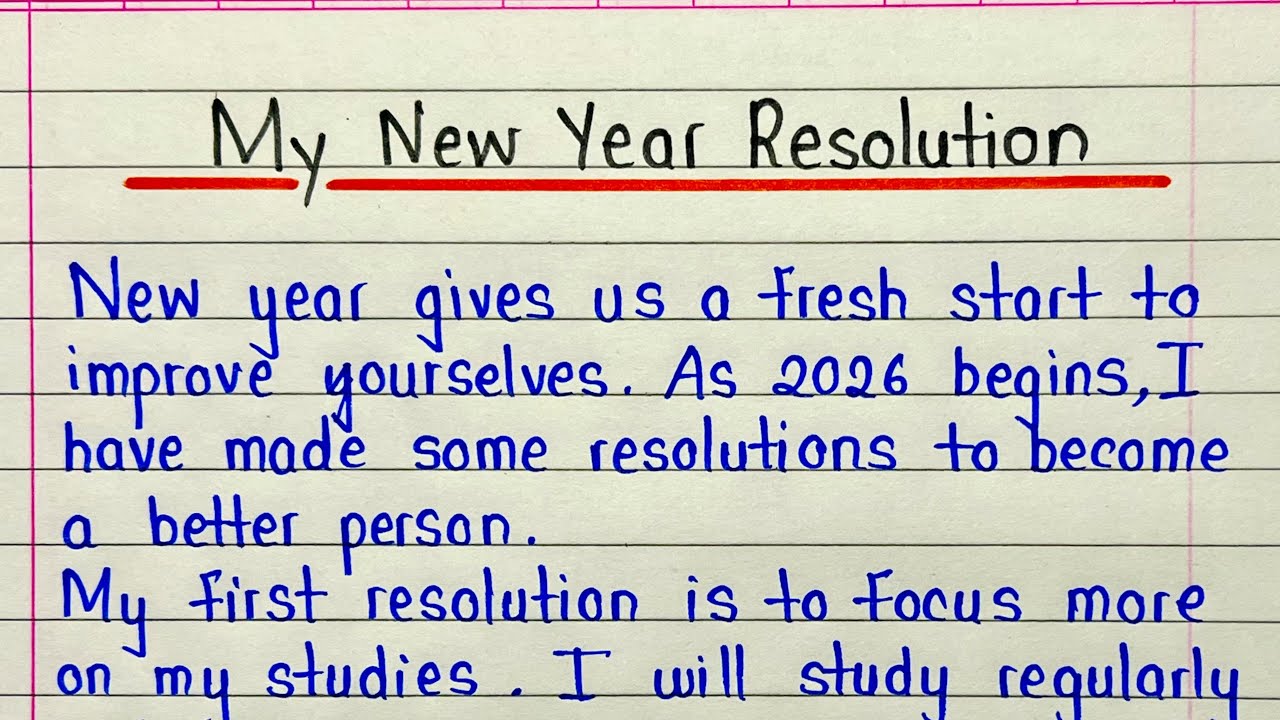 My New Year Resolution
New year gives us a fresh start to
improve yourselves. As 2026 begins, I
have made some resolutions to become
a better person.
My first resolution is to focus more
on my studies. I will study regularly